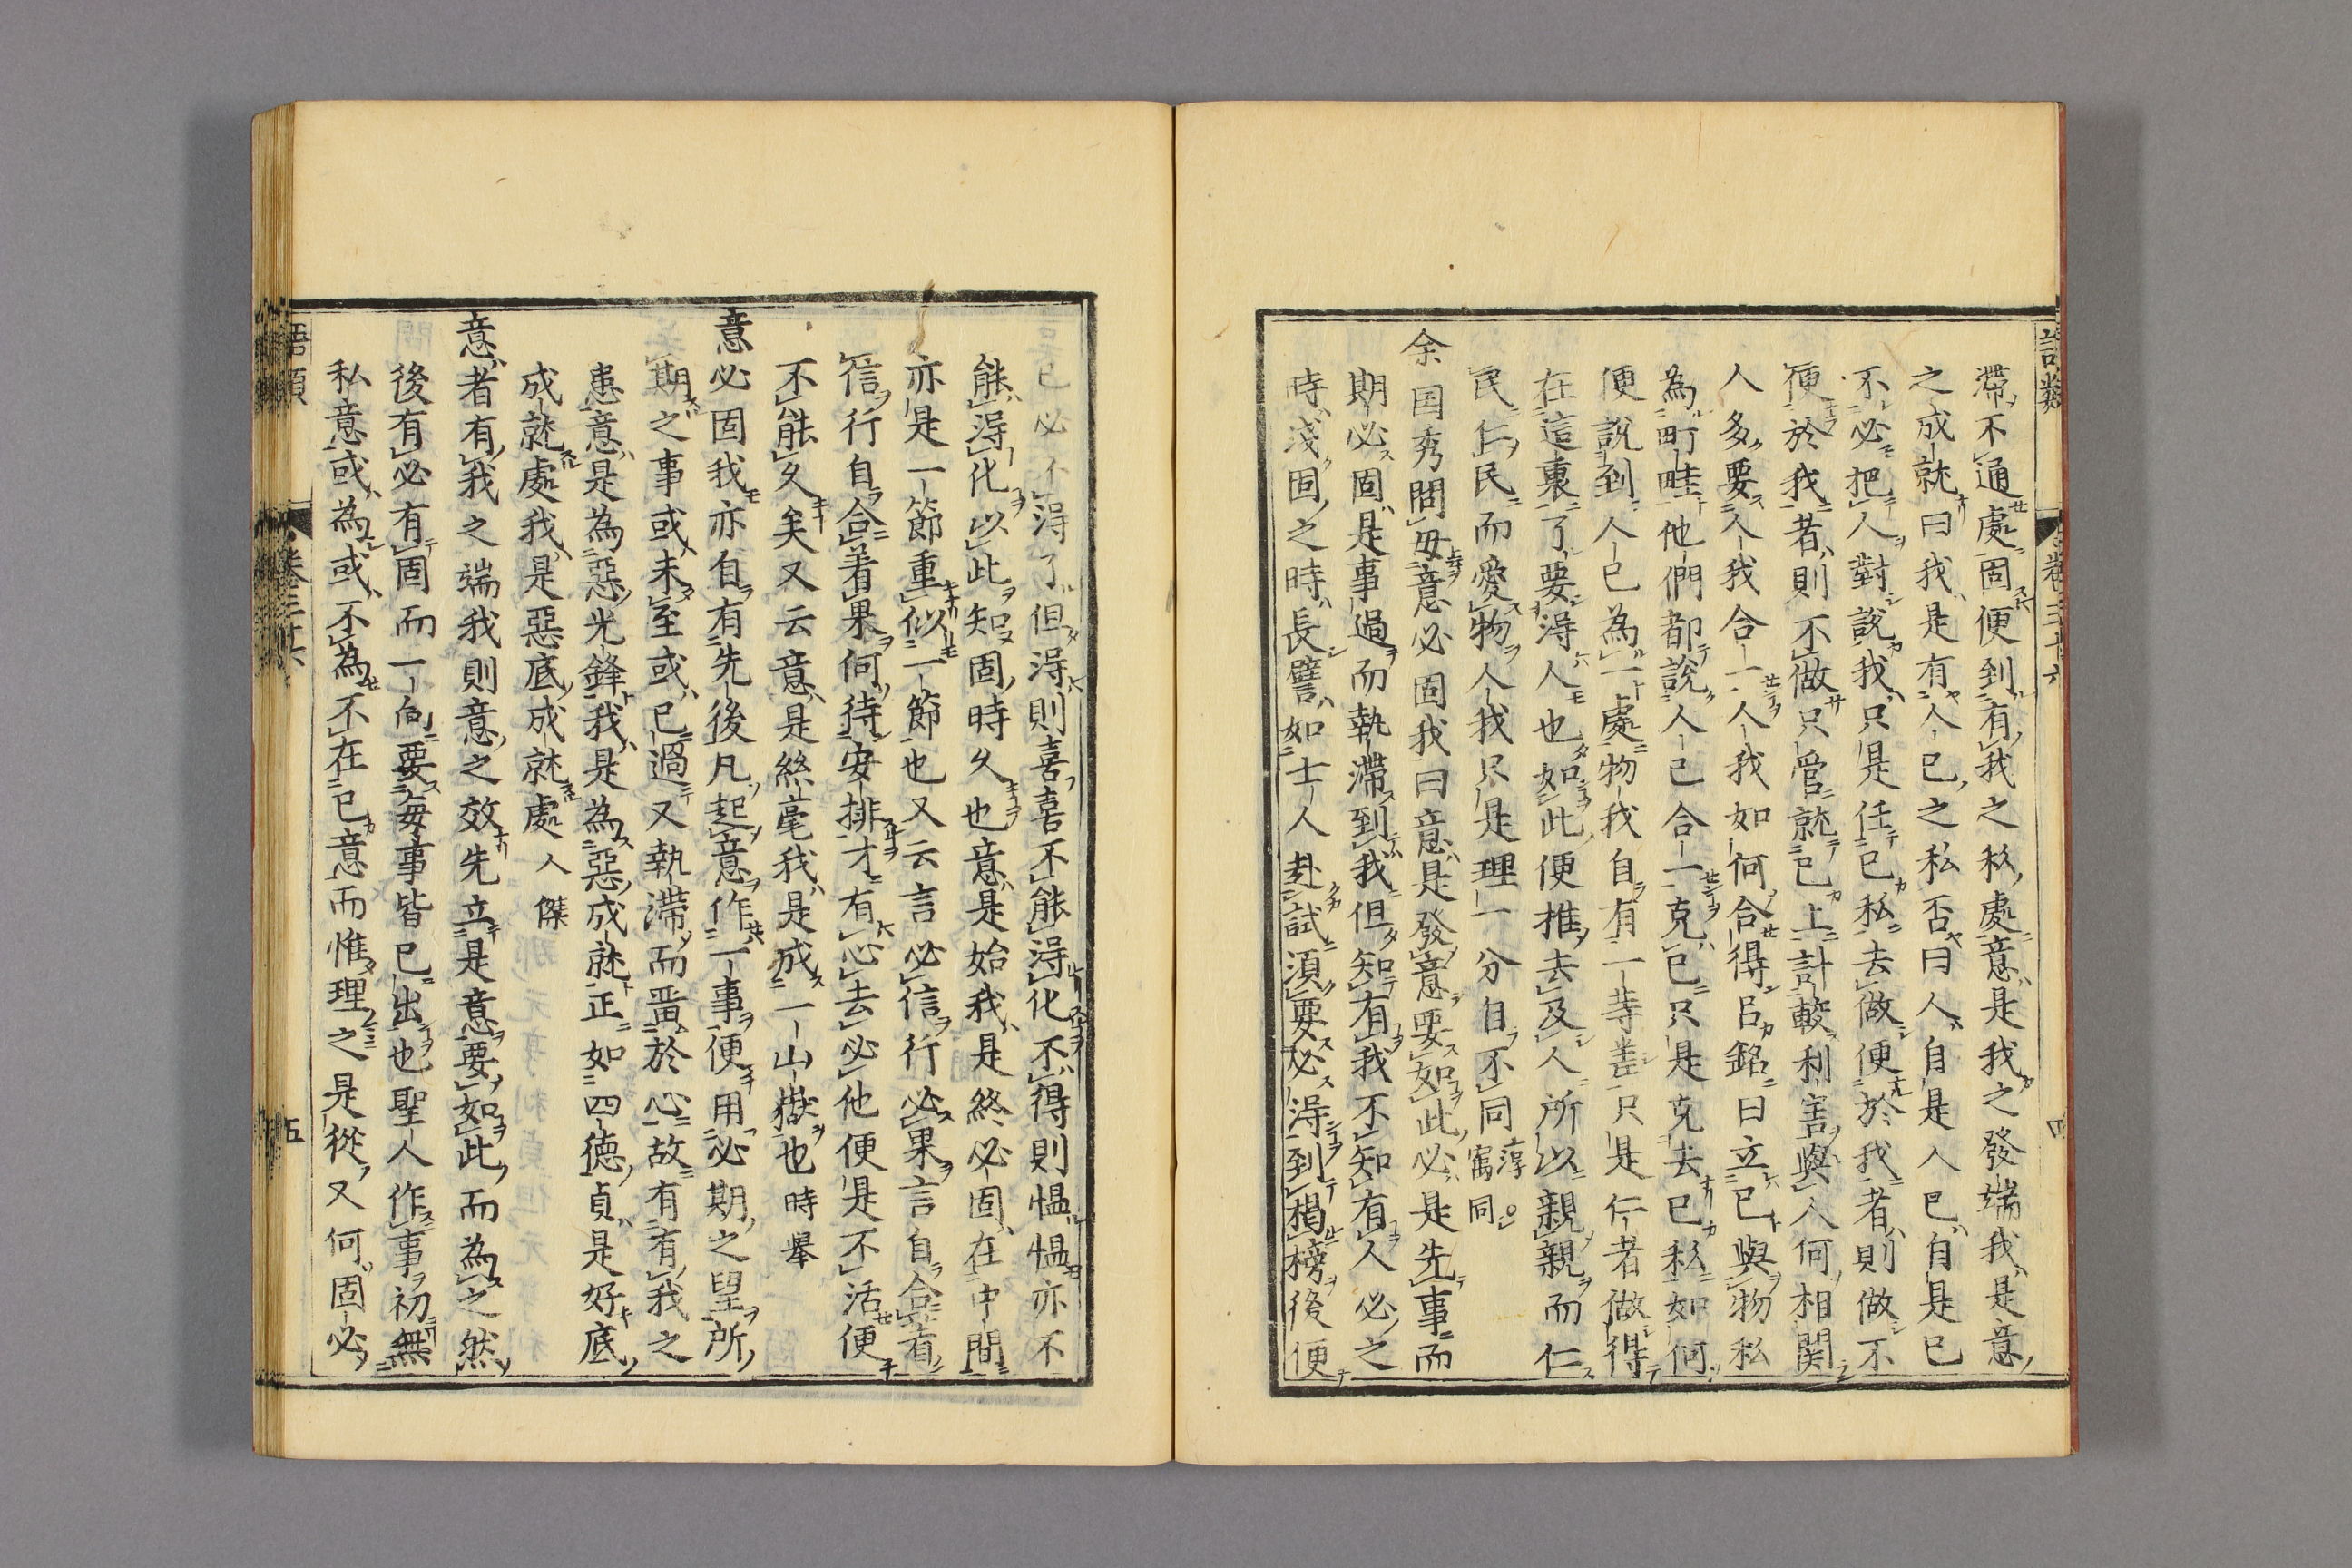 語類
卷三十六
四
滯不通處固便到有我之私處意是我之發端我是意
之成就曰我是有人己之私否曰人自是人己自是己
不必把人對説我只是任己私去做便於我者則做不
便於我者則不做只管就己上計較利害與人何相関
人多要人我合一人我如何合得吕銘曰立己與物私
為町畦他們都説人己合一克己只是克去己私如何
便説到人己為一處物我自有一等差只是仁者做得
在這裏了要淂人也如此便推去及人所以親親而仁
民仁民而愛物人我只是理一分自不同 淳 寓同
余国秀問毋意必固我曰意是發意要如此必是先事而
期必固是事過而執滯到我但知有我不知有人必之
時淺固之時長譬如士人赴試須要必淂到揭榜後便
已必不淂了但淂則喜喜不能淂化不得則愠愠亦不
能淂化以此知固時久也意是始我是終必固在中間
亦是一節重似一節也又云言必信行必果言自合有
信行自合着果何待安排才有心去必他便是不活便
不能久矣又云意是絲毫我是成一山嶽也 時舉
意必固我亦自有先後凡起意作一事便用必期之望所
期之事或未至或已過又執滯而畱於心故有有我之
患意是為惡先鋒我是為惡成就正如四德貞是好底
成就處我是惡底成就處 人傑
意者有我之端我則意之效先立是意要如此而為之然
後有必有固而一向要每事皆己出也聖人作事初無
私意或為或不為不在己意而惟理之是從又何固必
語類
卷三十六
五